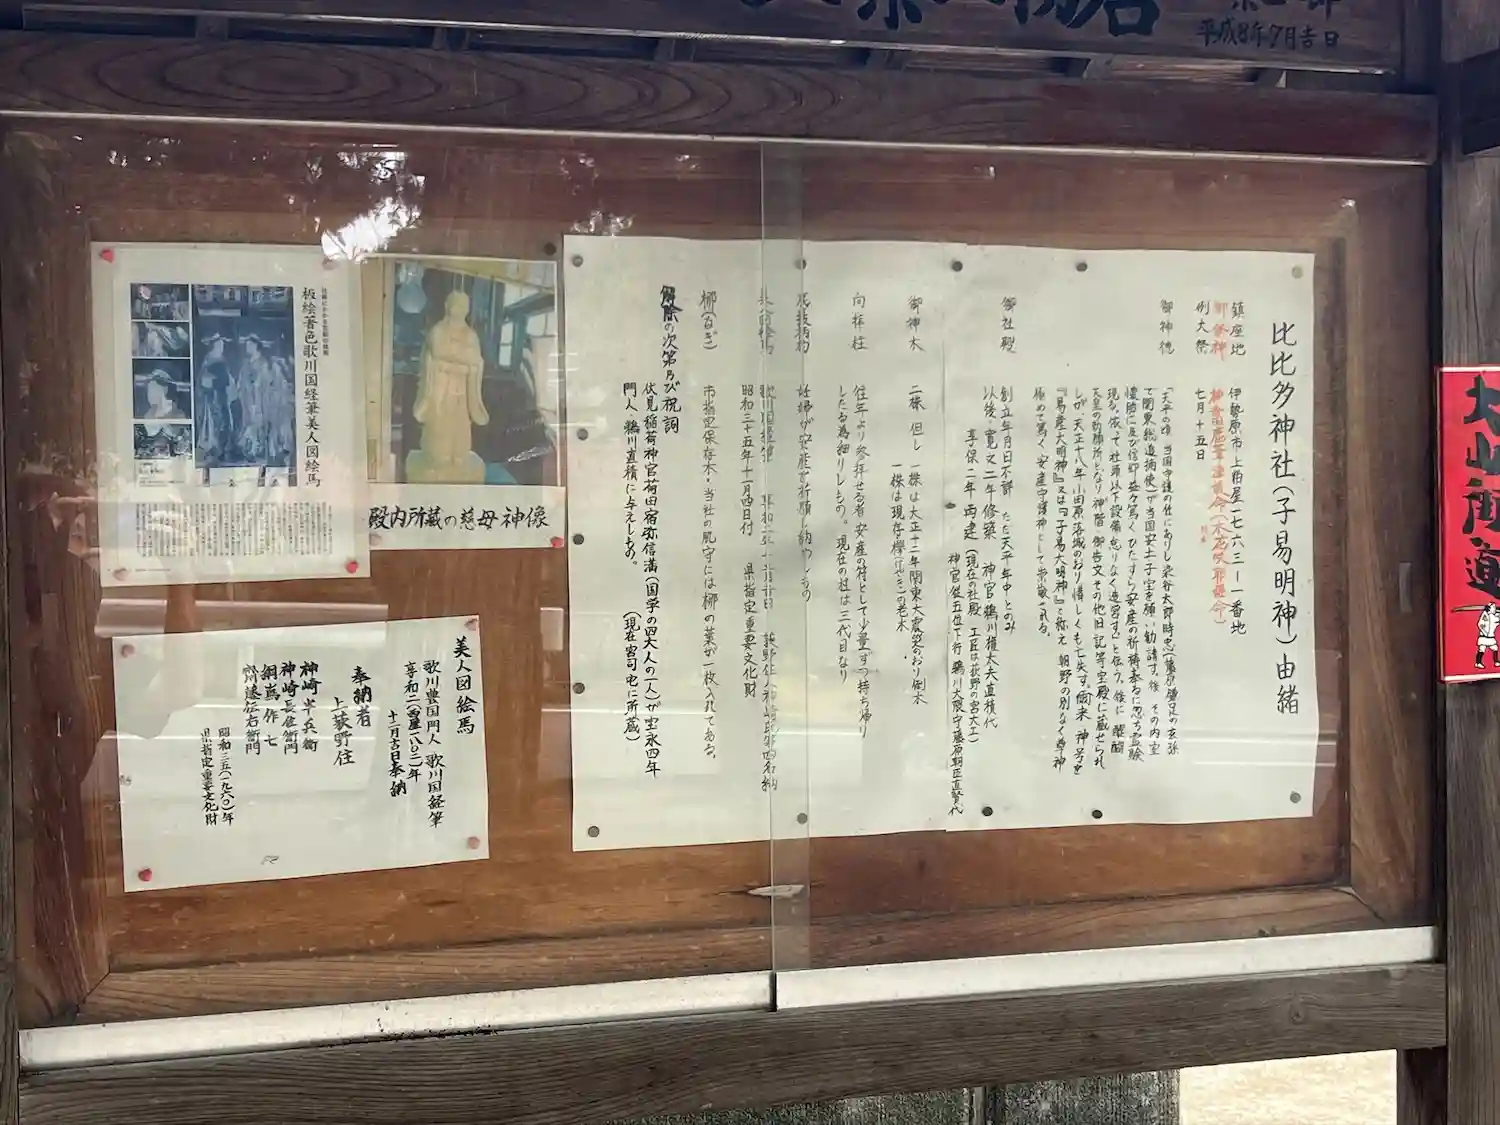 平成8年7月吉日
比比多神社(子易明神)由緒
鎮座地 伊勢原市上粕屋一七六三ー一番地
御祭神 神吾田鹿葦津姫命(木花咲耶姫命)
例大祭 七月十五日
御神徳 「天平の頃、当国守護の任にありし染谷太郎時忠(藤原鎌足の玄孫
にて関東総追捕使)が当国安土子宝を願い勧請す。後 その内室
懐胎に及び信仰益々篤くひたすら安産の祈祷奉るに忽ち霊験
現る。依って社頭以下設備怠りなく造営す」と伝う。後に 醍醐
天皇の勅願所となり神階 御告文その他旧記等宝殿に蔵せられ
しが、天正十八年小田原落城のおり惜しくも亡失す。爾来 神号を
『易産大明神』又は『子易大明神』と称え 朝野の別なく尊神
極めて篤く 安産守護神として崇敬される。
御社殿 創立年月日不詳 ただ天平年中とのみ
以後・寛文二年修築 神官 鵜川権太夫直積代
享保二年再建(現在の社殿 工匠は荻野の宮大工)
神官従五位下行 鵜川大隅守藤原朝臣直賢代
御神木 二株 但し 一株は大正十二年関東大震災のおり倒木
一株は現存欅(けやき)の老木
向拝柱 往年より参拝せる者 安産の符として少量ずつ持ち帰り
したる為細りしもの。現在の柱は三代目なり
底抜柄杓 妊婦が安産を祈願し納めしもの
歌川国経筆 享和二年
昭和三十五年十一月四日付 県指定重要文化財
梛(なぎ) 市指定保存木・当社の肌守には梛の葉が一枚入れてある。
解除の次第及び祝詞
伏見稲荷神官荷田宿弥信満(国学の四大人の一人)が宝永四年
門人・鵜川直積に与えしもの。 (現在宮司宅に所蔵)
板絵著色歌川国経筆美人図絵馬
殿内所蔵の慈母神像
美人図絵馬
歌川豊国門人 歌川国経筆
享和二(西暦一八〇二)年
十二月吉日奉納
奉納者
上荻野住
神崎半兵衛
神崎長左衛門
綱嶌作七
昭和三五(一九六〇)年
県指定重要文化財
大山街道